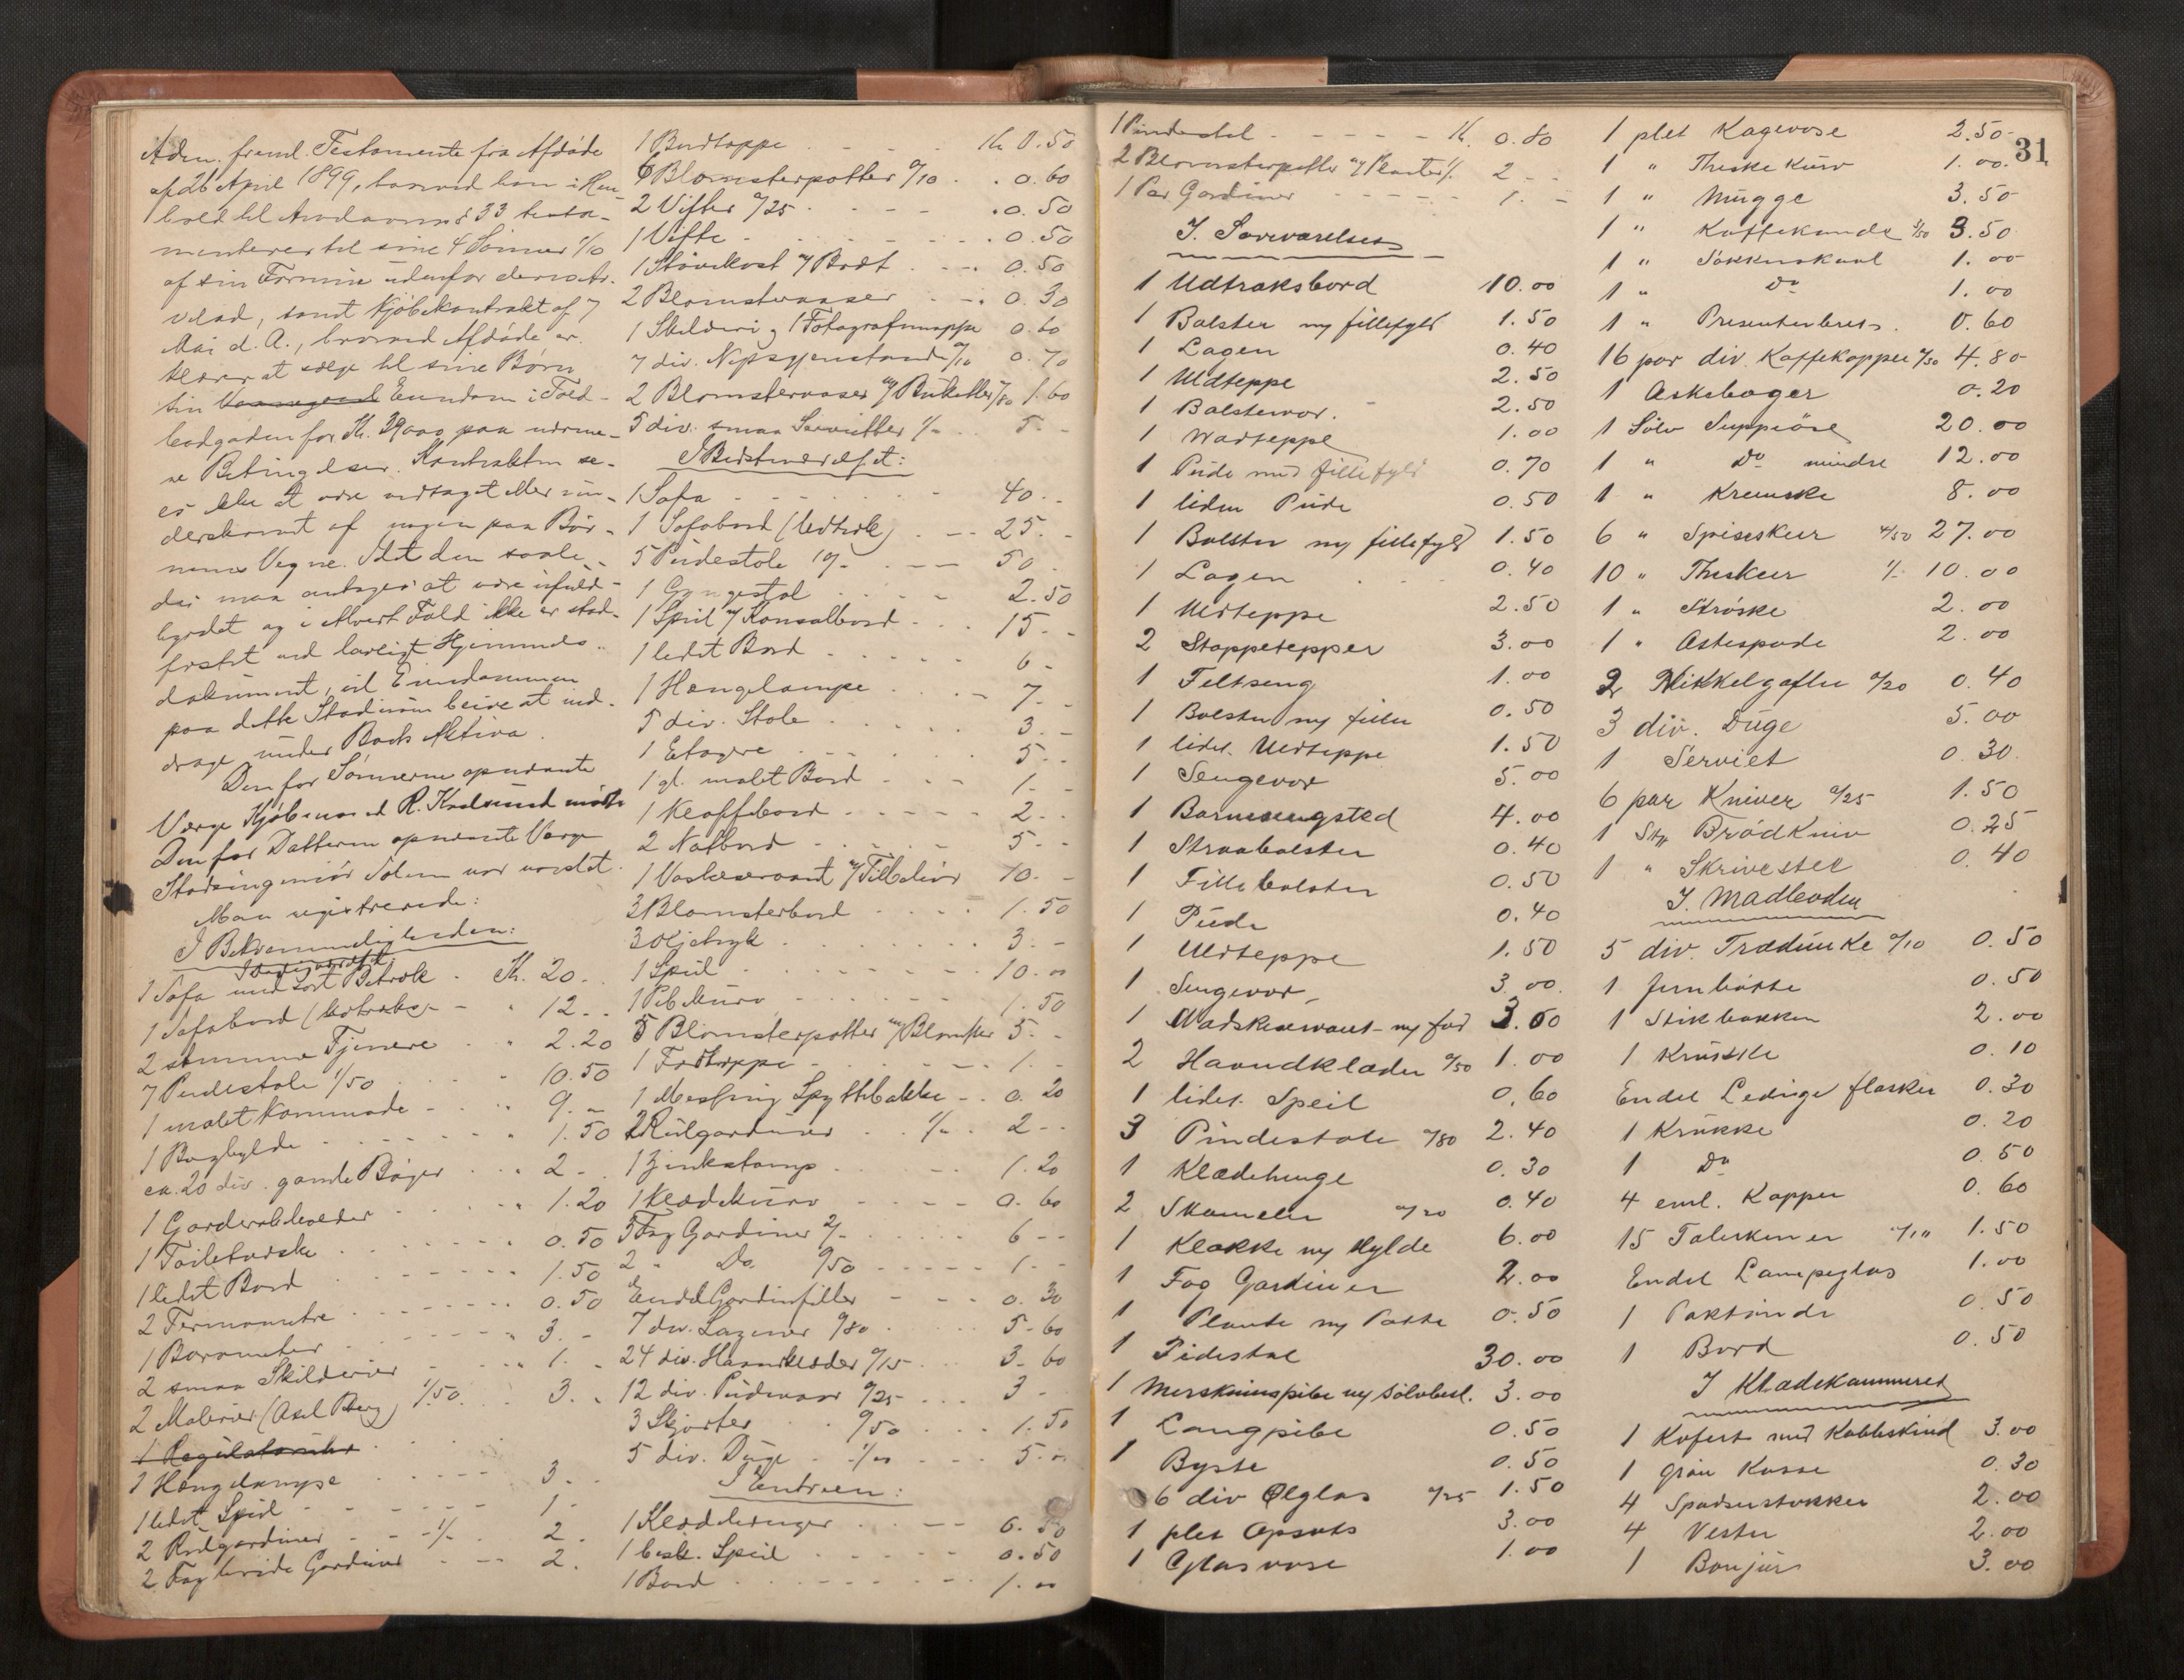 Adm. freml. Testamente fra Afdøde
af 26 April 1899, hvorved han i Hen-
hold til Arvelovens § 33 testa-
menterer til sine 4 Sønner 1/10
af sin Formue udenfor deres Ar-
velod, samt Kjøbekontrakt af 7
Mai d. A., hvorved Afdøde er-
klærer at sælge til sine Børn
sin Eiendom i Told-
bodgaden for Kr. 39000 paa nærme-
re Betingelser. Kontrakten se-
es ikke at være vedtaget eller un-
derskrevet af nogen paa Bør-
nenes Vegne. Idet den saale-
des maa antages at være ufuld-
byrdet og i ethvert Fald ikke er stad-
fæstet ved lovligt Hjemmels-
dokument, vil Eiendommen
paa dette Stadium blive at ind-
drage under Boets Aktiva.
Den for Sønnerne opnævnte
Værge Kjøbmand R. mødte
Den for Datteren opnævnte Værge
Stadsingeniør Solem var varslet.
Man registrerede:
I Bekvemmeligheden:
1 Sofa med sort Betræk Kr. 20.
1 Sofabord 12.
2 stumme Tjenere 2.20
7 Pindestole 1/50 10.50
1 malet Kommode 9.-
1 Boghylde 1.50
ca. 20 div. gamle Bøger 2-
1 Garderobeholder 1.20
1 Toiletæske 0.50
1 lidet Bord 1.50
2 Termometre 0.50
1 Barometer 3.-
2 smaa Skilderier 1.-
2 Malerier (Axel Berg) 1/50 3.
1 Regulatoruhr
1 Hængelampe 3.
1 lidet Speil 1-
2 Rulgardiner 1/- 2.
2 Fag hvide Gardiner 2.
1 Bordteppe Kr 0.50
6 Blomsterpotter a/10 0.60
2 Vifter a/25 0.50
1 Vifte 0.50
1 Støvekost m/ Bræt 0.50
2 Blomstervaser 0.30
1 Skilderi og 1 Fotografimappe 0.60
7 div. Nipsgjenstande a/10 0.70
2 Blomstervaser m/ Buketter /80 1.60
5 div. smaa Servietter 1/- 5-
I Bedsteværelset:
1 Sofa 40.-
1 Sofabord (Udtræk) 25.-
5 Pindestole 10/- 50.
1 Gyngestol 2.50
1 Speil m/ Konsolbord 15.-
1 lidet Bord 6-
1 Hængelampe 7-
5 div. Stole 3.-
1 Etagere 5-
1 gl. malet Bord 1.-
1 Klaffebord 2.-
2 Natbord 5-
1 Vaskeservant m/ Tilbehør 10.-
3 Blomsterbord 1.50
3 Oljetryk 3.-
1 Speil 10.-
1 1.50
5 Blomsterpotter m/ Blomster 5.-
1 Fodteppe 1.-
1 Messing Spyttebakke 0.20
2 Rulgardiner 1/- 2-
1 Zinkstamp 1.20
1 Klædekurv 0.60
3 Fag Gardiner 2/- 6-
2 " Do. a/50 1.-
Endel Gardinfiller 0.30
7 div. Lagener a/80 5.60
24 div. Haandklæder a/15 3.60
12 div. Pudevaar a/25 3-
3 Skjorter a/50 1.50
5 div. Duge 1/00 5.-
I Entreen:
1 Klædehenger 6.50
1 besk. Speil 0.50
1 Bord 1.-
31
1 Pindestol Kr 0.80
2 Blomsterpotter m/ Planter 1/- 2-
1 Par Gardiner 1.-
I. Soveværelset
1 Udtræksbord 10.00
1 Bolster m/ fillefyld 1.50
1 Lagen 0.40
1 Uldteppe 2.50
1 Bolstervor. 2.50
1 Watteppe 1.00
1 Pude med fillefyld 0.70
1 liden Pude 0.50
1 Bolster m/ fillefyld 1.50
1 Lagen 0.40
1 Uldteppe 2.50
2 Stoppetepper 3.00
1 Feltseng 1.00
1 Bolster m/ filler 0.50
1 lidet Uldteppe 1.50
1 Sengevor 5.00
1 Barnesengsted 4.00
1 Straabolster 0.40
1 Fillebolster 0.50
1 Pude 0.40
1 Uldteppe 1.50
1 Sengevor 3.00
1 Vadskeservant m/ fad 3.00
2 Haandklæder a/50 1.00
1 lidet Speil 0.60
3 Pindestole a/80 2.40
1 Klædehenge 0.30
2 Skamler a/20 0.40
1 Klokke m/ Hylde 6.00
1 Fag Gardiner 2.00
1 Plante m/ Potte 0.50
1 Pidestal 30.00
1 Merskumspibe m/ sølvbesl. 3.00
1 Langpibe 0.50
1 Byste 0.50
6 div Ølglas a/25 1.50
1 plet Opsats 3.00
1 Glasvase 1.00
1 plet Kagevase 2.50
1 " Theskekurv 1.00
1 " Mugge 3.50
1 " Kaffekande 3/50 3.50
1 " Sukkerskaal 1.00
1 " Do 1.00
1 " Presenterbret 0.60
16 par div. Kaffekopper a/30 4.80
1 Askebæger 0.20
1 Sølv Suppeøse 20.00
1 " Do mindre 12.00
1 " Kremske 8.00
6 " Spiseskeer 4/50 27.00
10 " Theskeer 1/- 10.00
1 " Strøske 2.00
1 " Ostespade 2.00
2 Nikkelgafler a/20 0.40
3 div. Duge 5.00
1 Serviet 0.30
6 par Kniver a/25 1.50
1 Stk Brødkniv 0.25
1 " Skrivestel 0.40
I. Madboden
5 div. Trædunke a/10 0.50
1 Jernbøtte 0.50
1 Stikbækken 2.00
1 Krukke 0.10
Endel Ledige flasker 0.30
1 Krukke 0.20
1 Do 0.50
4 eml. Kopper 0.60
15 Talerkener a/10 1.50
Endel Lampeglas 1.00
1 0.50
1 Bord 0.50
I Klædekammeret
1 Kofert med Kobbeskind 3.00
1 grøn Kasse 0.30
4 Spadserstokker 2.00
4 Vester 2.00
1 Bonjur 3.00